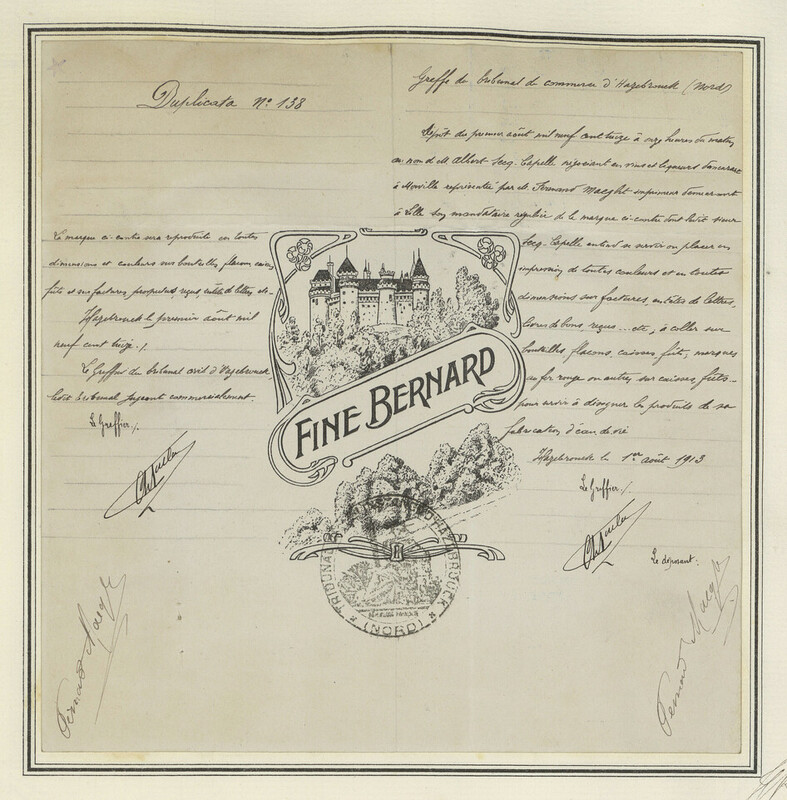 Duplicata N° 138
La marque ci-contre sera reproduite en toutes
dimensions et couleurs sur bouteilles, flacons, caisses,
fûts et sur factures, prospectus, reçus, entête de lettres, etc.
Hazebrouck le premier août mil
neuf cent treize ./.
Le Greffier du tribunal civil d'Hazebrouck,
dit tribunal jugeant commercialement.
Le Greffier ./.
Fernand Maeght
Greffe du tribunal de commerce d'Hazebrouck (Nord)
Dépôt du premier août mil neuf cent treize à onze heures du matin
au nom de M. Albert Secq-Capelle négociant en vins et liqueurs demeurant
à Merville représenté par M. Fernand Maeght imprimeur demeurant
à Lille son mandataire régulier de la marque ci-contre dont ledit sieur
Secq-Capelle entend se servir en placer en
impression de toutes couleurs et en toutes
dimensions sur factures, entêtes de lettres,
livres de bons, reçus ... etc., à coller sur
bouteilles, flacons, caisses, fûts, marques
au fer rouge ou autres sur caisses, fûts
pour servir à désigner les produits de sa
fabrication d'eau de vie
Hazebrouck le 1er août 1913
Le Greffier ./.
Le déposant:
Fernand Maeght
FINE BERNARD
TRIBUNAL HAZEBROUCK
(NORD)